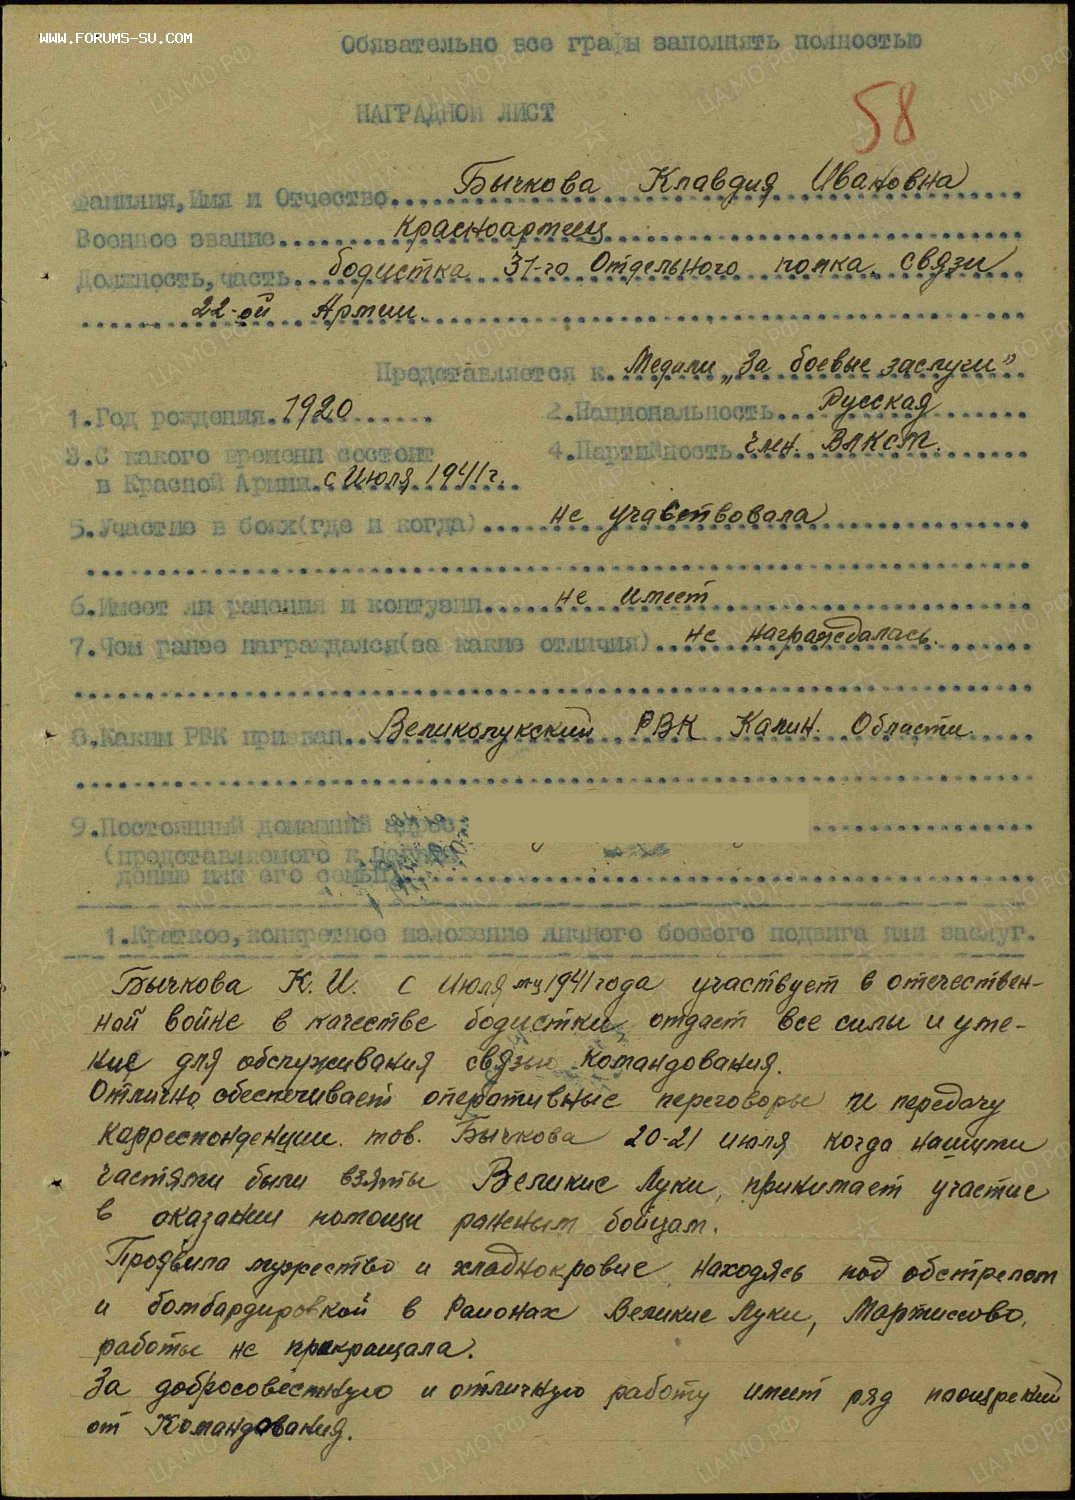 WWW.FORUMS-SU.COM
Обязательно все графы заполнять полностью
58
НАГРАДНОЙ ЛИСТ
Фамилия, Имя и Отчество Бычкова Клавдия Ивановна
Военное звание Красноармеец
Должность, часть бодистка 31-го Отдельного полка связи
22-ой Армии.
Представляется к Медали „За боевые заслуги”
1. Год рождения 1920 2. Национальность Русская
3. С какого времени состоит 4. Партийность член. ВЛКСМ.
в Красной Армии с Июля 1941 г.
5. Участие в боях (где и когда) не учавствовала
6. Имеет ли ранения и контузии не имеет
7. Чем ранее награждался (за какие отличия) не награждалась.
8. Каким РВК призван Великолукский РВК Калин. Области
9. Постоянный домашний адрес
(представляемого к награждению или его семьи)
1. Краткое, конкретное изложение личного боевого подвига или заслуг.
Бычкова К. И. с Июля м-ц 1941 года участвует в отечествен-
ной войне в качестве бодистки, отдает все силы и уме-
ние для обслуживания связью командования.
Отлично обеспечивает оперативные переговоры и передачу
карреспонденции. тов. Бычкова 20-21 июля когда нашими
частями были взяты Великие Луки, принимает участие
в оказании помощи раненым бойцам.
Проявила мужество и хладнокровие находясь под обстрелом
и бомбардировкой в Районах Великие Луки, Мартисово,
работы не прекращала.
За добросовестную и отличную работу имеет ряд поощрений
от Командования.